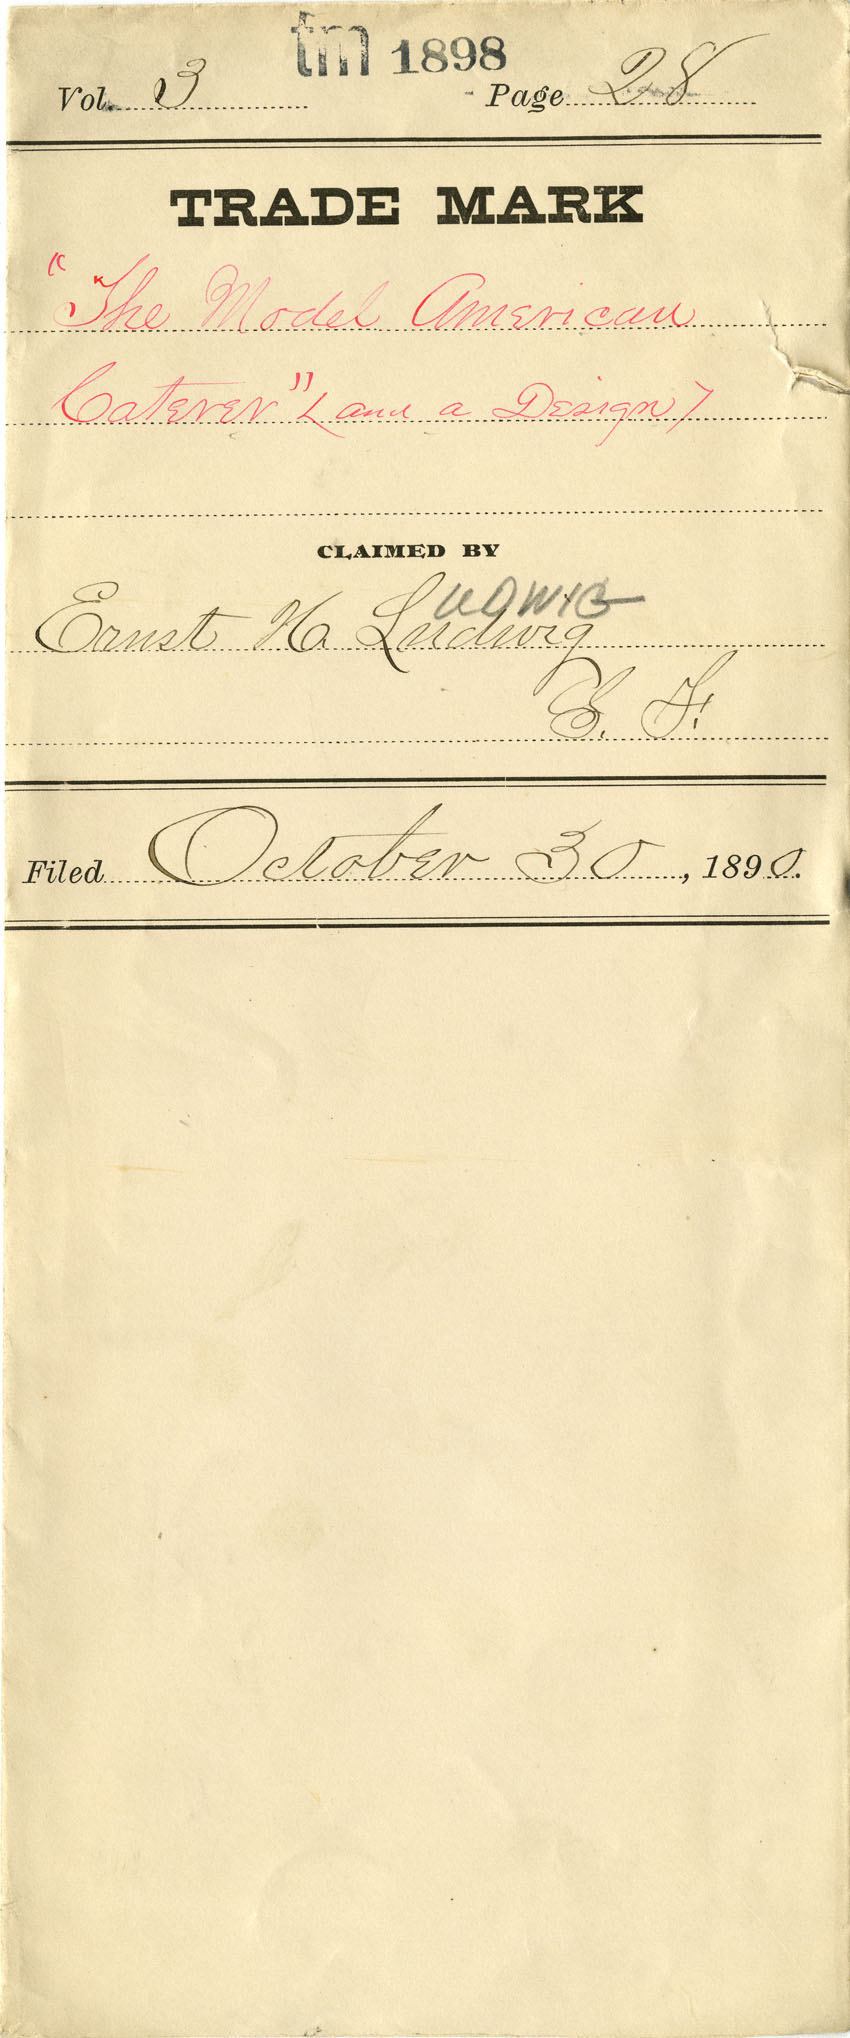 tm 1898
Vol. 3 Page 28
TRADE MARK
"The Model American
Caterer" (and a Design)
CLAIMED BY
UDWIG
Ernst H. Ludwig
S. F.
Filed October 30, 1890.